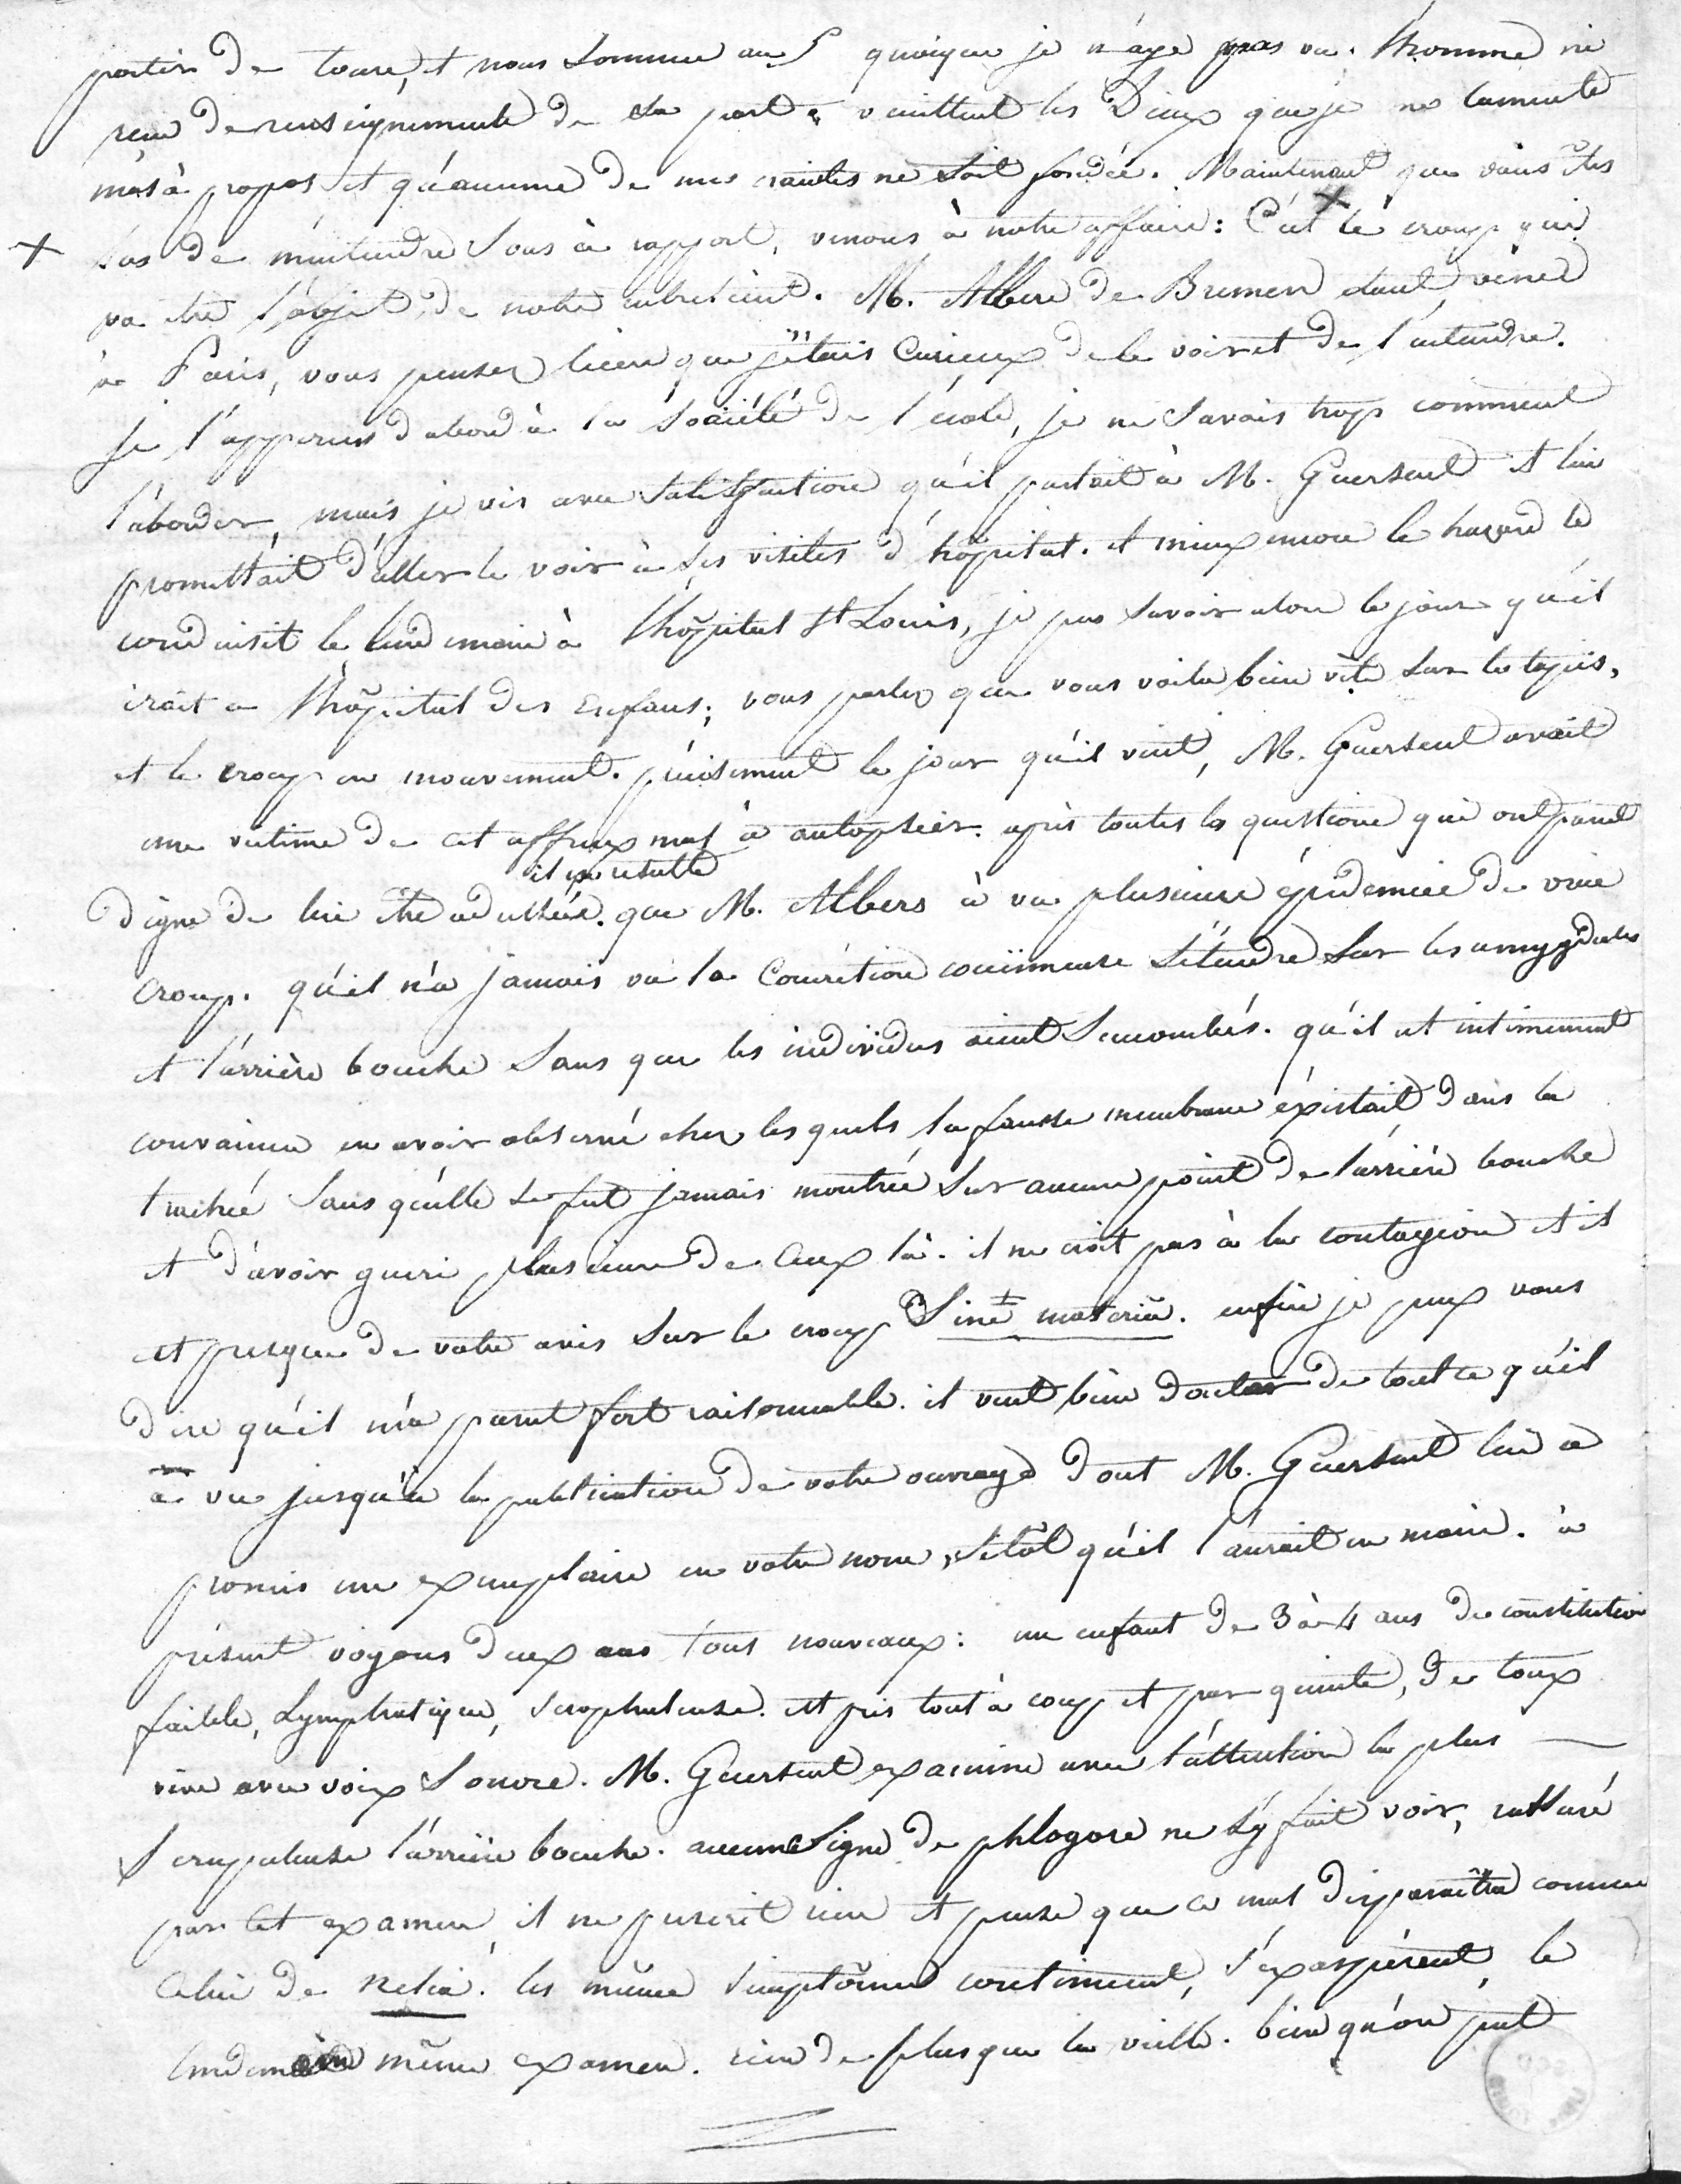 partir de tours, et nous sommes au 5 quoique je n'aye pas vu l'homme ni
reçu de renseignements de sa part. veuillent les Dieux que je me lamente
mal à propos et qu'aucune de mes craintes ne soit fondée. Maintenant que vous êtes
+ las de m'entendre sous ce rapport, venons à notre affaire: C'est le croup qui
va être l'objet de notre entretient. M. Albers de Bremen étant venu
à Paris, vous pensez bien que j'étais Curieux de le voir et de l'entendre.
je l'apperçus d'abord à la Société de l'école, je ne savais trop comment
l'aborder, mais je vis avec satisfaction qu'il parlait à M. Guersent et lui
promettait d'aller le voir à ses visites d'hôpital. et mieux encore le hazard le
conduisit le lendemain à l'hôpital St Louis, je pus savoir alors le jour qu'il
irait à l'hôpital des Enfans; vous parlez que vous voila bien vîte sur le tapis,
et le croup en mouvement. précisement le jour qu'il vint, M. Guersent avait
une victime de cet affreux mal à autopsier. après toutes les questions qui ont paru
il en résulte
digne de lui être adressées. que M. Albers à vu plusieurs épidemies de vrai
croup. qu'il n'a jamais vu la Concrétion couënneuse s'étendre sur les amygdales
et l'arrière bouche sans que les individus aient succombés. qu'il est intimement
convaincu en avoir observé chez lesquels la fausse membrane éxistait dans la
trachée sans qu'elle se fut jamais montrée sur aucun point de l'arrière bouche
et d'avoir gueri plusieurs de ceux là. il ne croit pas à la contagion et il
est presque de votre avis sur le croup Sine materiâ. enfin je puis vous
dire qu'il m'a parut fort raisonnable. il veut bien douter de tout ce qu'il
a vu jusqu'à la publication de votre ouvrage dont M. Guersent lui a
promis un exemplaire en votre nom, sitôt qu'il l'aurait en main. à
présent voyons deux cas tous nouveaux: un enfant de 3 à 4 ans de constitution
faible, Lymphatique, scrophuleuse. est pris tout à coup et par quinte, de toux
vive avec voix sonore. M. Guersent examine avec l'attention la plus
scrupuleuse l'arrière bouche. aucune signe de phlogose ne s'y fait voir, rassuré
par cet examen, il ne prescrit rien et pense que ce mal disparaîtra comme
celui de Nelia. les même simptômes continuent, s'exaspérent, le
lendemain même examen. rien de plus que la veille. bien qu'on put